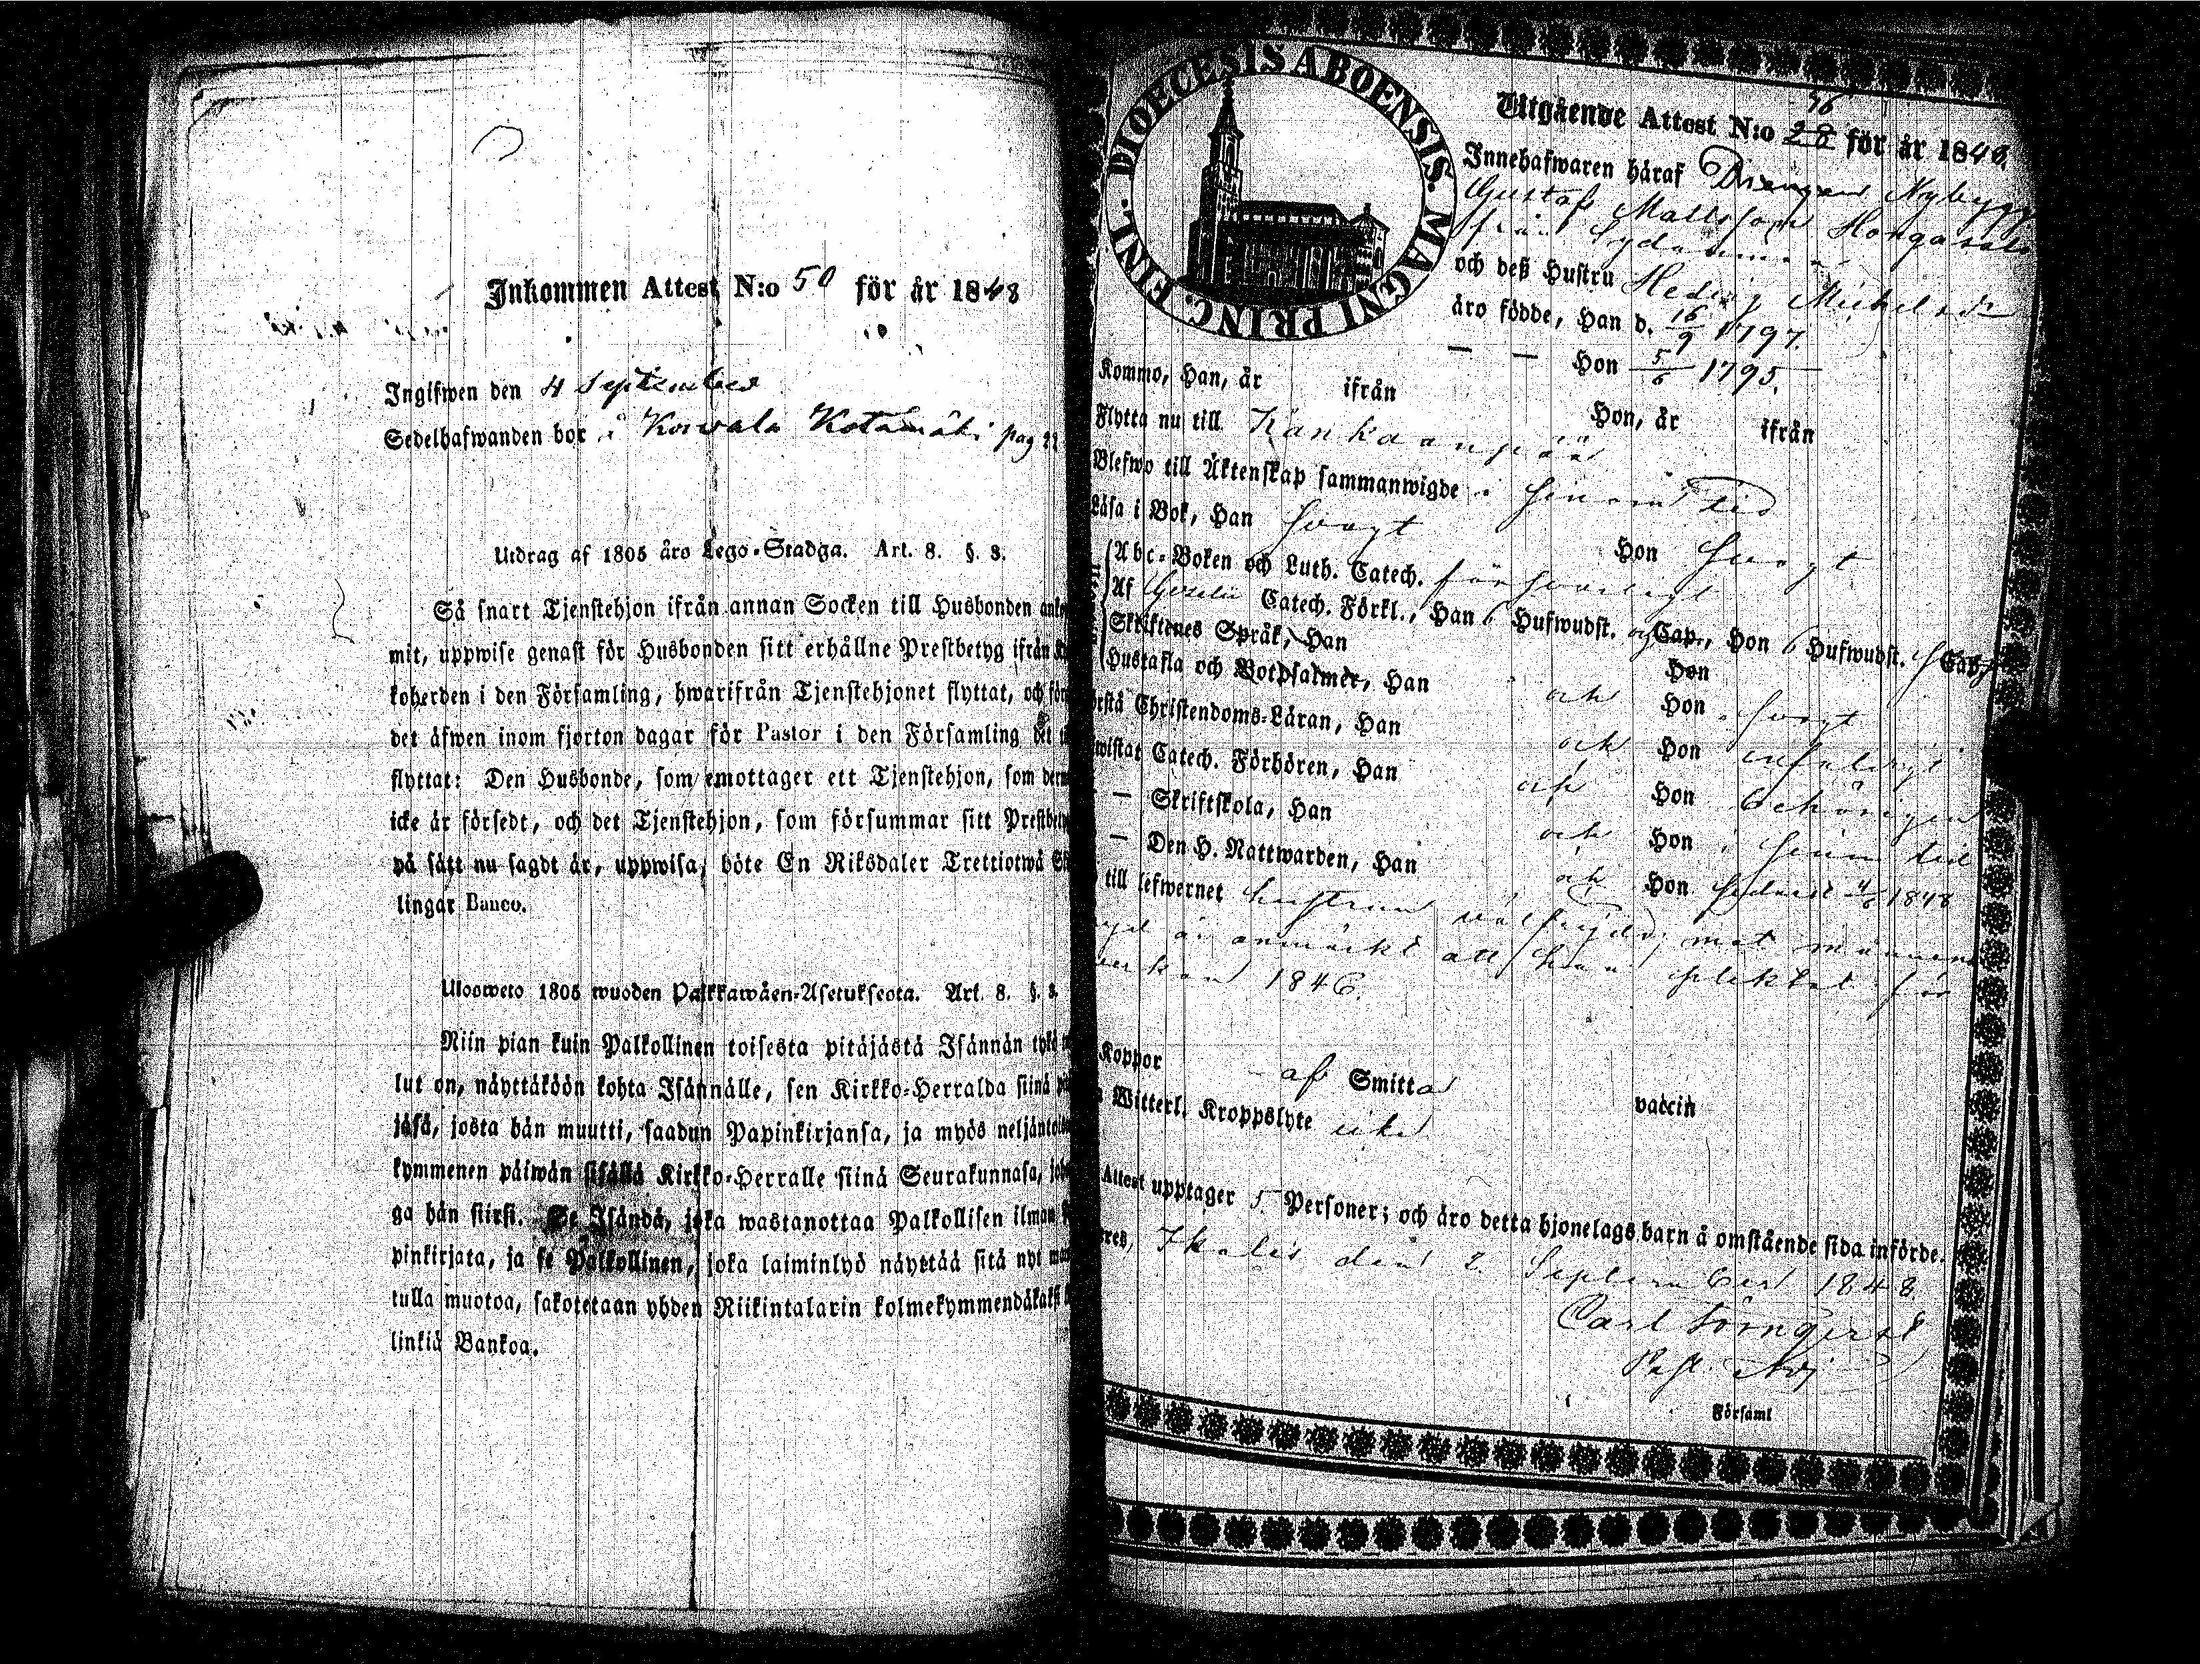 Inkommen Attest N:o 50 för år 1848
Ingifwen den 4 September
Sedelhafwanden bor i Korvala Kotamäki pag
Utdrag af 1805 års Lego-Stadga. Art. 8. §. 8.
Så snart Tjenstehjon ifrån annan Socken till Husbonden
mit, uppwise genast för Husbonden sitt erhållne Prestbetyg ifrån
koherden i den Församling, hwarifrån Tjenstehjonet flyttat, och
det äfwen inom fjorton dagar för Pastor i den Församling det
flyttat: Den Husbonde, som emottager ett Tjenstehjon, som
icke är försedt, och det Tjenstehjon, som försummar sitt
på sätt nu sagdt är, uppwisa, böte En Riksdaler Trettiotwå
lingar Banco.
Ulosweto 1805 wuoden Palkkawäen-Asetuksesta. Art. 8. §. 8.
Niin pian kuin Palkollinen toisesta pitäjästä Isännän tykö
lut on, näyttäköön kohta Isännälle, sen Kirkko-Herralda siinä
jäsä, josta hän muutti, saadun Papinkirjansa, ja myös
kymmenen päiwän sisällä Kirkko-Herralle siinä Seurakunnasa,
ga hän siirsi. Se Isändä, joka wastanottaa Palkollisen ilman
pinkirjata, ja se Palkollinen, joka laiminlyö näyttää sitä nyt
tulla muotoa, sakotetaan yhden Riikintalarin kolmekymmendäkaksi
linkiä Bankoa.
DIOECESIS ABOENSIS. MAGNI PRINC. FINL.
Utgående Attest N:o 28 46 för år 1848.
Innehafwaren häraf Drengen Nybygg
Gustaf Mattsson Hongasalo
från
och deß Hustru Hedvig Michelsdr
äro födde, Han d. 16/9 1797.
— — Hon 5/6 1795.
Kommo, Han, år ifrån
Hon, år ifrån
Flytta nu till Kankaanpää
Blefwo till Äktenskap sammanwigde i sinom tid
Läsa i Bok, Han svagt Hon svagt
Abc-Boken och Luth. Catech. försvarligt
Af Catech. Förkl., Han 6 Hufwudst. Cap., Hon 6 Hufwudst. Cap.
Skriftenes Språk, Han Hon
Hustafla och Botpsalmer, Han och Hon svagt
Christendoms-Läran, Han och Hon enfaldigt
wistat Catech. Förhören, Han och Hon behörigen
— Skriftskola, Han och Hon i sinom tid
— Den H. Nattwarden, Han och Hon sednast 1848
till lefwernet hustrun välfrejdad, mot mannens
är anmärkt att han pliktat för
1846.
Koppor af Smitta vaccin
Witterl. Kroppslyte icke
Attest upptager 5 Personer; och äro detta hjonelags barn å omstående sida införde.
Ikalis den 2 September 1848
Carl
Past. Adj
Församl